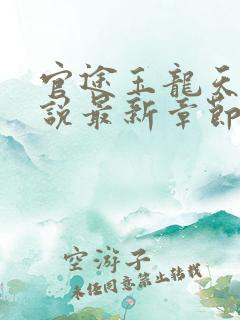 官途王龍天
說最新章節
空游子
未经同意禁止转载